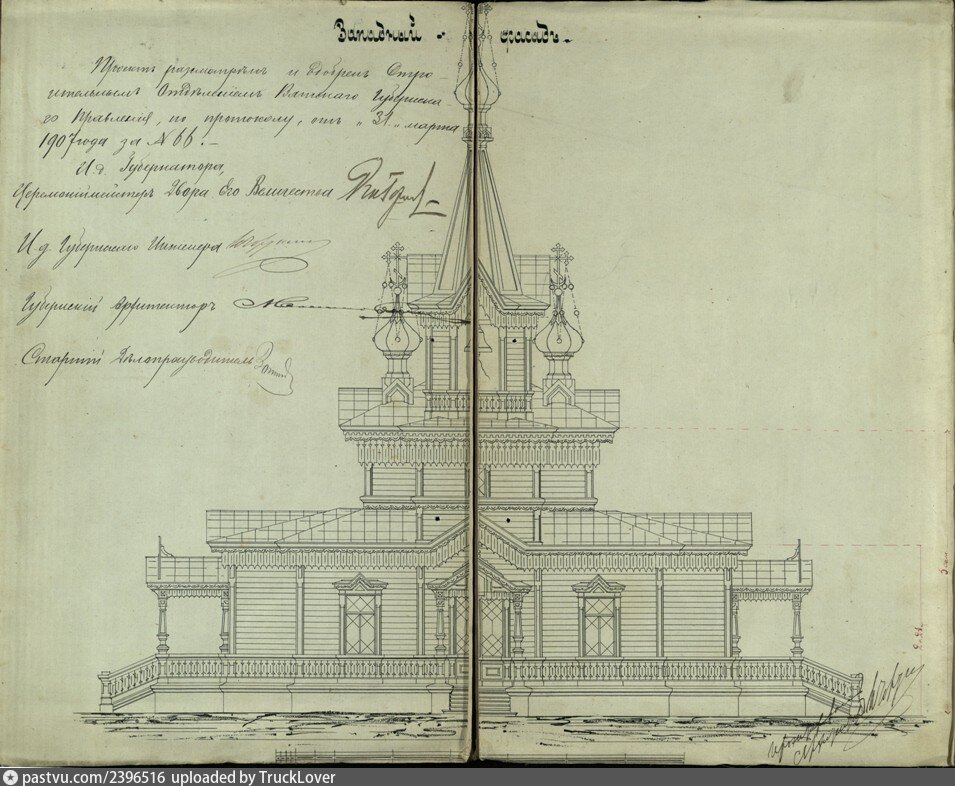 Западный - фасадъ.
Проектъ разсмотрѣнъ и одобренъ Строи-
тельнымъ Отдѣленіемъ Вятскаго Губернска-
го Правленія, по протоколу, отъ „31„ марта
1907 года за № 66.
И.д. Губернатора,
Церемоніймейстеръ Двора Его Величества
И.д. Губернскаго Инженера
Губернскій Архитекторъ
Старшій Дѣлопроизводитель
pastvu.com/2396516 uploaded by TruckLover